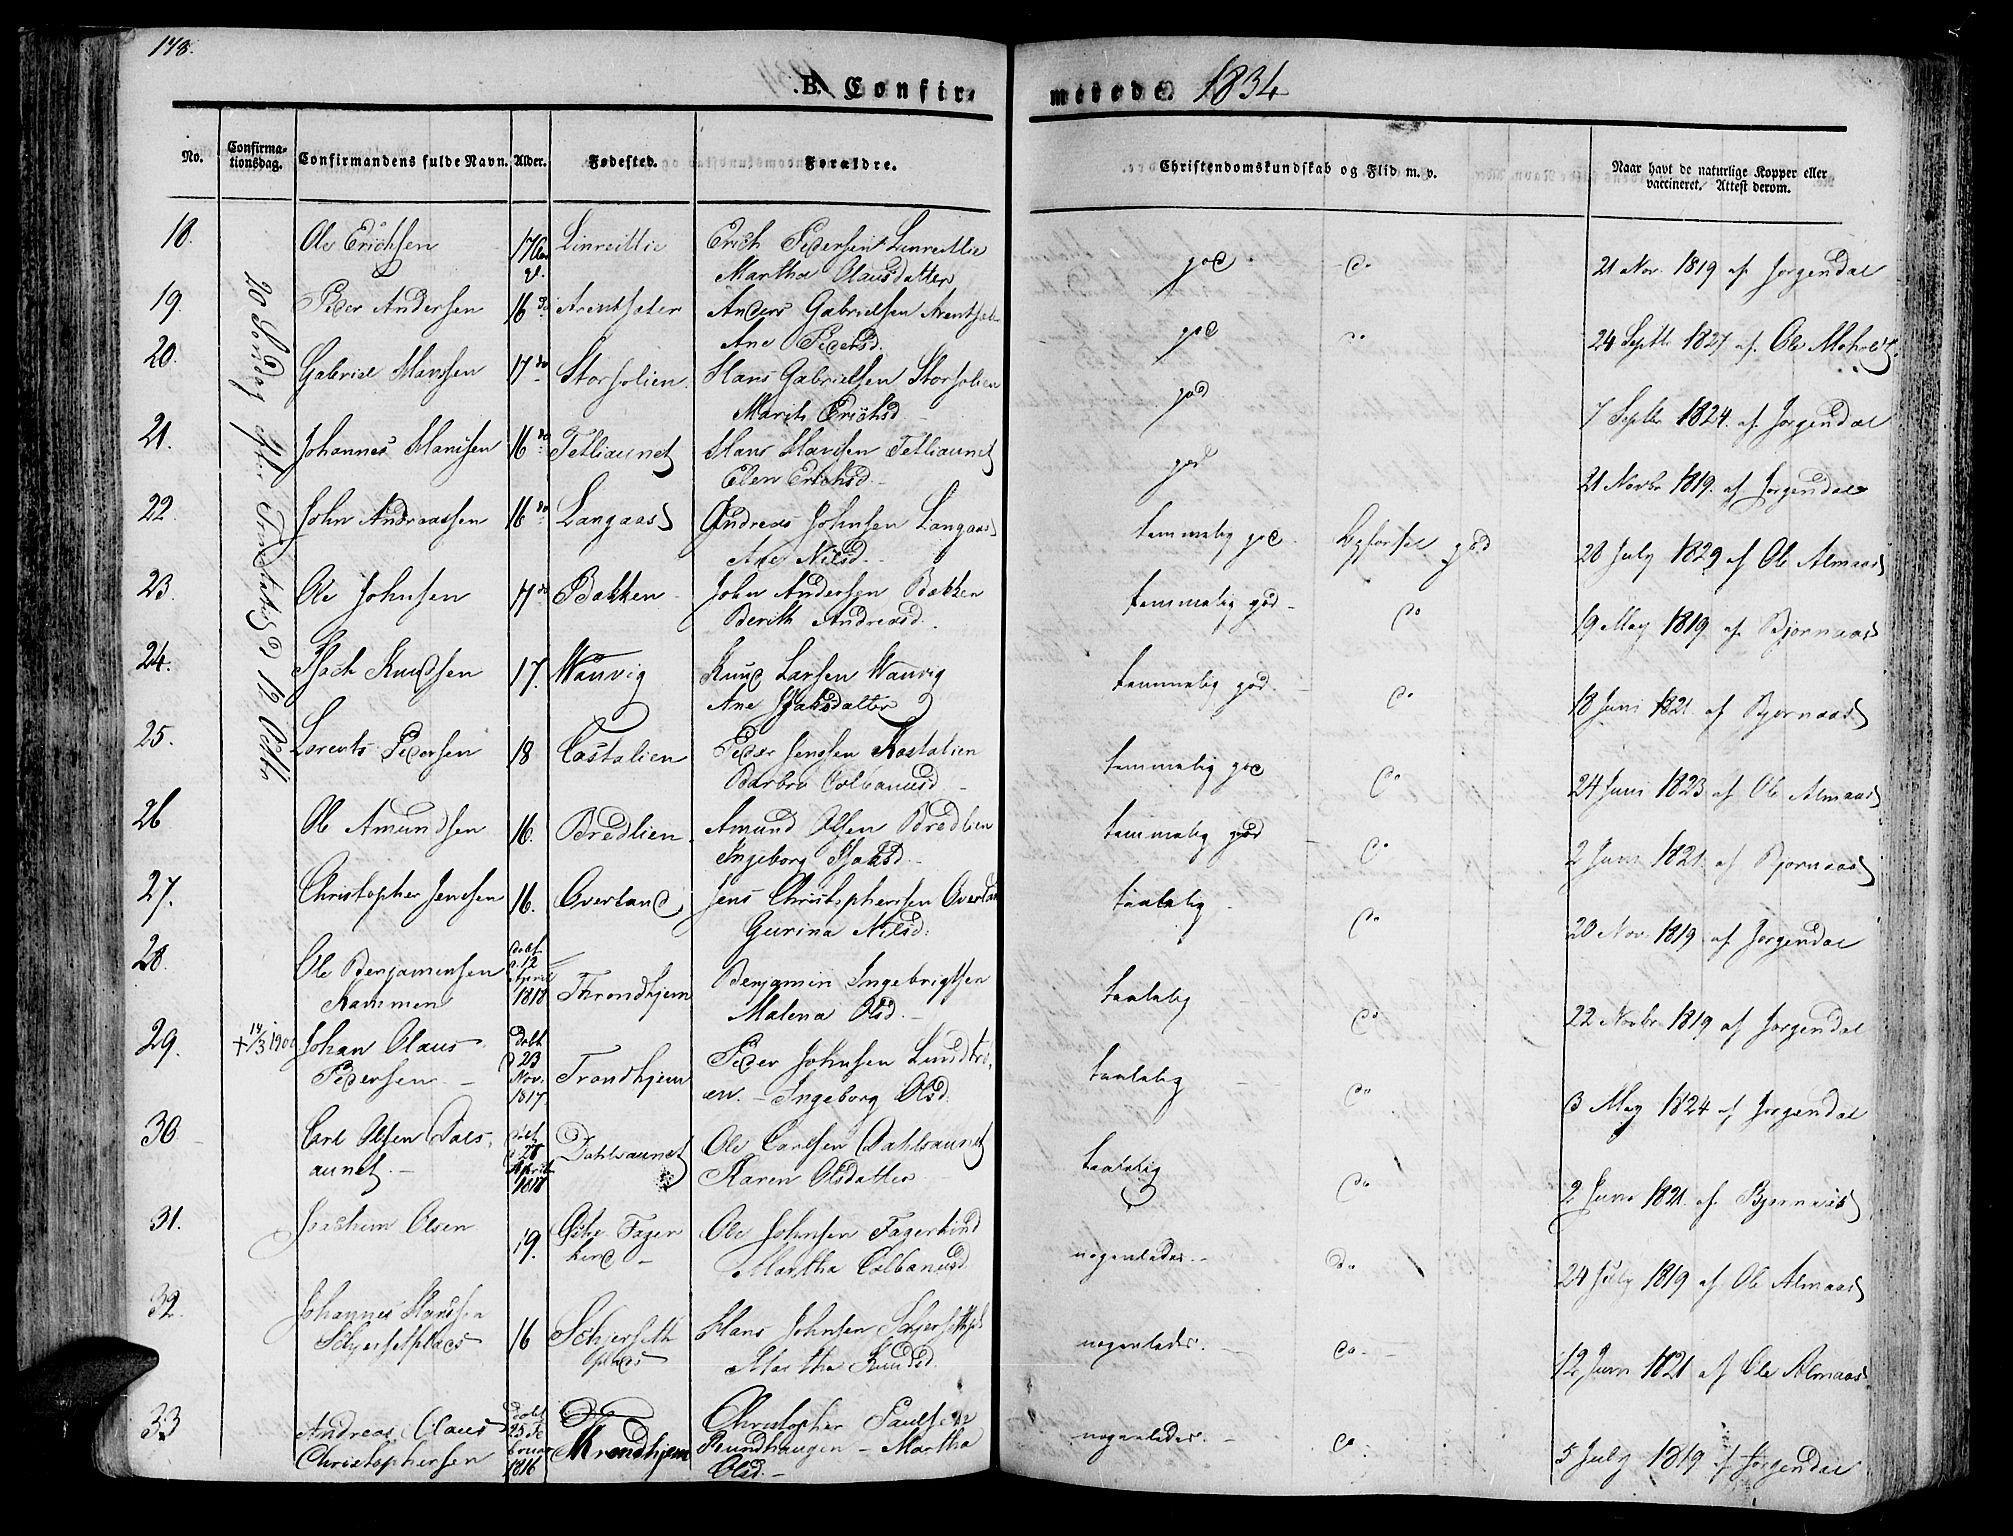 178.
B. Confir-
merede. 1834
No.
Confirma-
tionsdag.
Confirmandens fulde Navn.
Alder.
Fødested.
Forældre.
Christendomskundskab og Flid m. v.
Naar havt de naturlige Kopper eller
vaccineret. Attest derom.
20 Søndag efter Trinitatis d 12 Octbr
18. Ole Erichsen 17 Linreitlie Erich Pedersen Linreitlie god do 21 Nov. 1819 af Jørgendal
Martha Clausdatter
19. Peder Andersen 16 do Arentsæter Anders Gabrielsen Arentsæter god do 24 Septbr 1827 af Ole Moholdt
Ane Pedersd.
20. Gabriel Hansen 17 do Storsolien Hans Gabrielsen Storsolien god 7 Septbr 1824. af Jørgendal
Marith Erichsd
21. Johannes Hansen 16 do Tetliaunet Hans Hansen Tetliaunet god 21 Novbr 1819. af Jørgendal
Elen Erichsd.
22. John Andreassen 16 do Langaas Andreas Johnsen Langaas temmelig god Opførsel god 28 July 1829 af Ole Almaas
Ane Nilsd.
23. Ole Johnsen 17 do Bakken John Andersen Bakken temmelig god do 19 May 1819 af Bjørnaas
Berith Andreasd.
24. Isach Knudsen 17. Wanvig Knud Larsen Wanvig temmelig god. do 18 Juni 1821 af Bjørnaas
Ane Isaksdatter
25. Lorents Pedersen 18 Costalien Peder Jenssen Kostalien temmelig god do 24 Juni 1823 af Ole Almaas
Barbro Colbanusd
26 Ole Amundsen 16. Bredlien Amund Olsen Bredlien temmelig god do 2 Juni 1821 af Bjørnaas
Ingeborg Isaksd.
27. Christopher Jenssen 16. Overland Jens Christophersen Overland taalelig do 20 Nov 1819 af Jørgendal
Gurina Nilsd.
28. Ole Benjaminsen døbt 12 April 1818 Throndhjem Benjamin Ingebrigtsen taalelig do 22 Novbr 1819 af Jørgendal
Rammen Malena Olsd.
29. + 14/3 1900 Johan Claus døbt d 23 Nov. 1817 Trondhjem Peder Johnsen Lundtrø- taalelig do 3 May 1824 af Jørgendal
Pedersen en. Ingeborg Olsd.
30 Carl Olsen Dals- døbt 28 April 1818 Dahlsaunet Ole Carlsen Dahlsaunet taalelig do 2 Juni 1821 af Bjørnaas
aunet. Karen Olsdatter
31. Joachim Olsen 19. Fager- Ole Johnsen Fagerlund nogenledes do 24 July 1819 af Ole Almaas
Martha Colbanusd
32. Johannes Hansen 16 Schjerseth Hans Johnsen nogenledes do 12 Juni 1821 af Ole Almaas
Schjersetplads plads Martha Knudsd
33 Andreas Claus døbt 25 Februar 1816 Throndhjem Christopher Paulsen nogenledes do 5 July 1819 af Jørgendal
Christophersen Rundhaugen - Martha
Olsd.